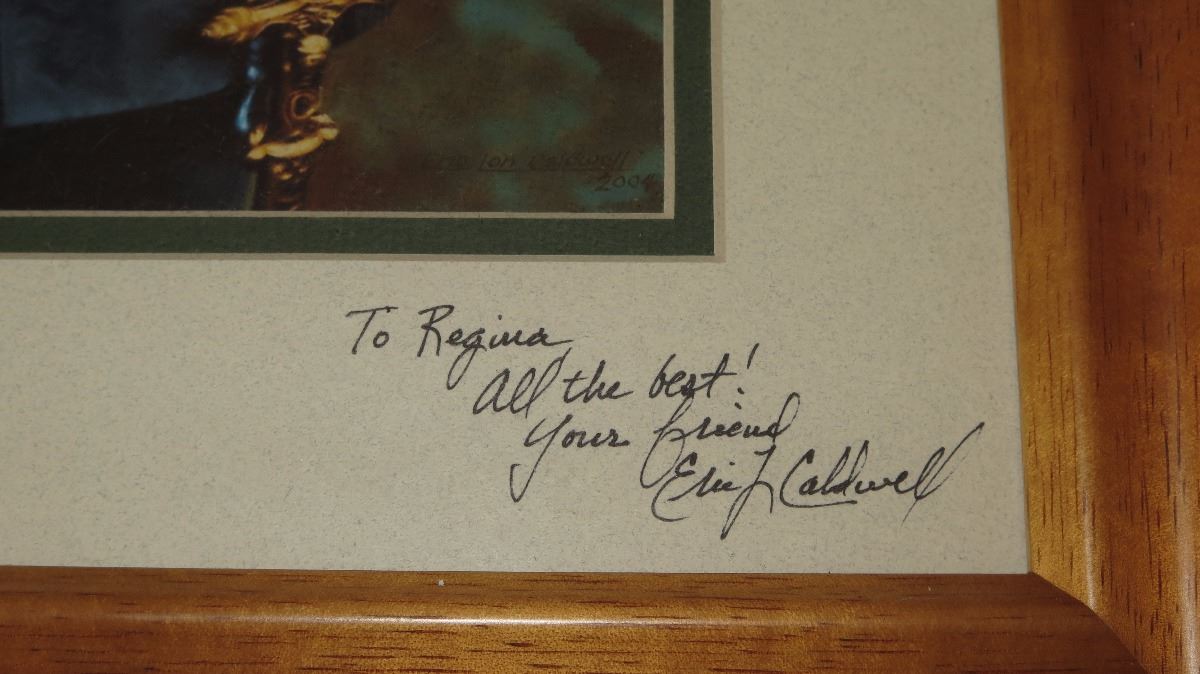 Eric Lon Caldwell
2004
To Regina
All the best!
Your friend
Eric L Caldwell